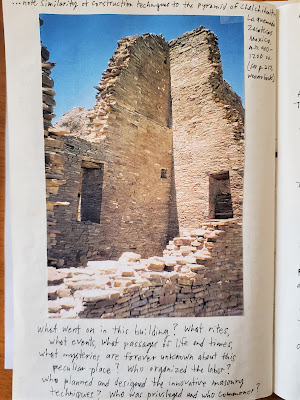 ...note similarity of construction techniques to the pyramid of Chalchihuites,
La Quemada
Zacatecas
Mexico,
A.D. 900-
1200 A.D.
(See p. 217,
What went on in this building? What rites,
what events, what passage of life and times,
what mysteries are forever unknown about this
peculiar place? Who organized the labor?
who planned and designed the innovative masonry
techniques? Who was privileged and who commoner?